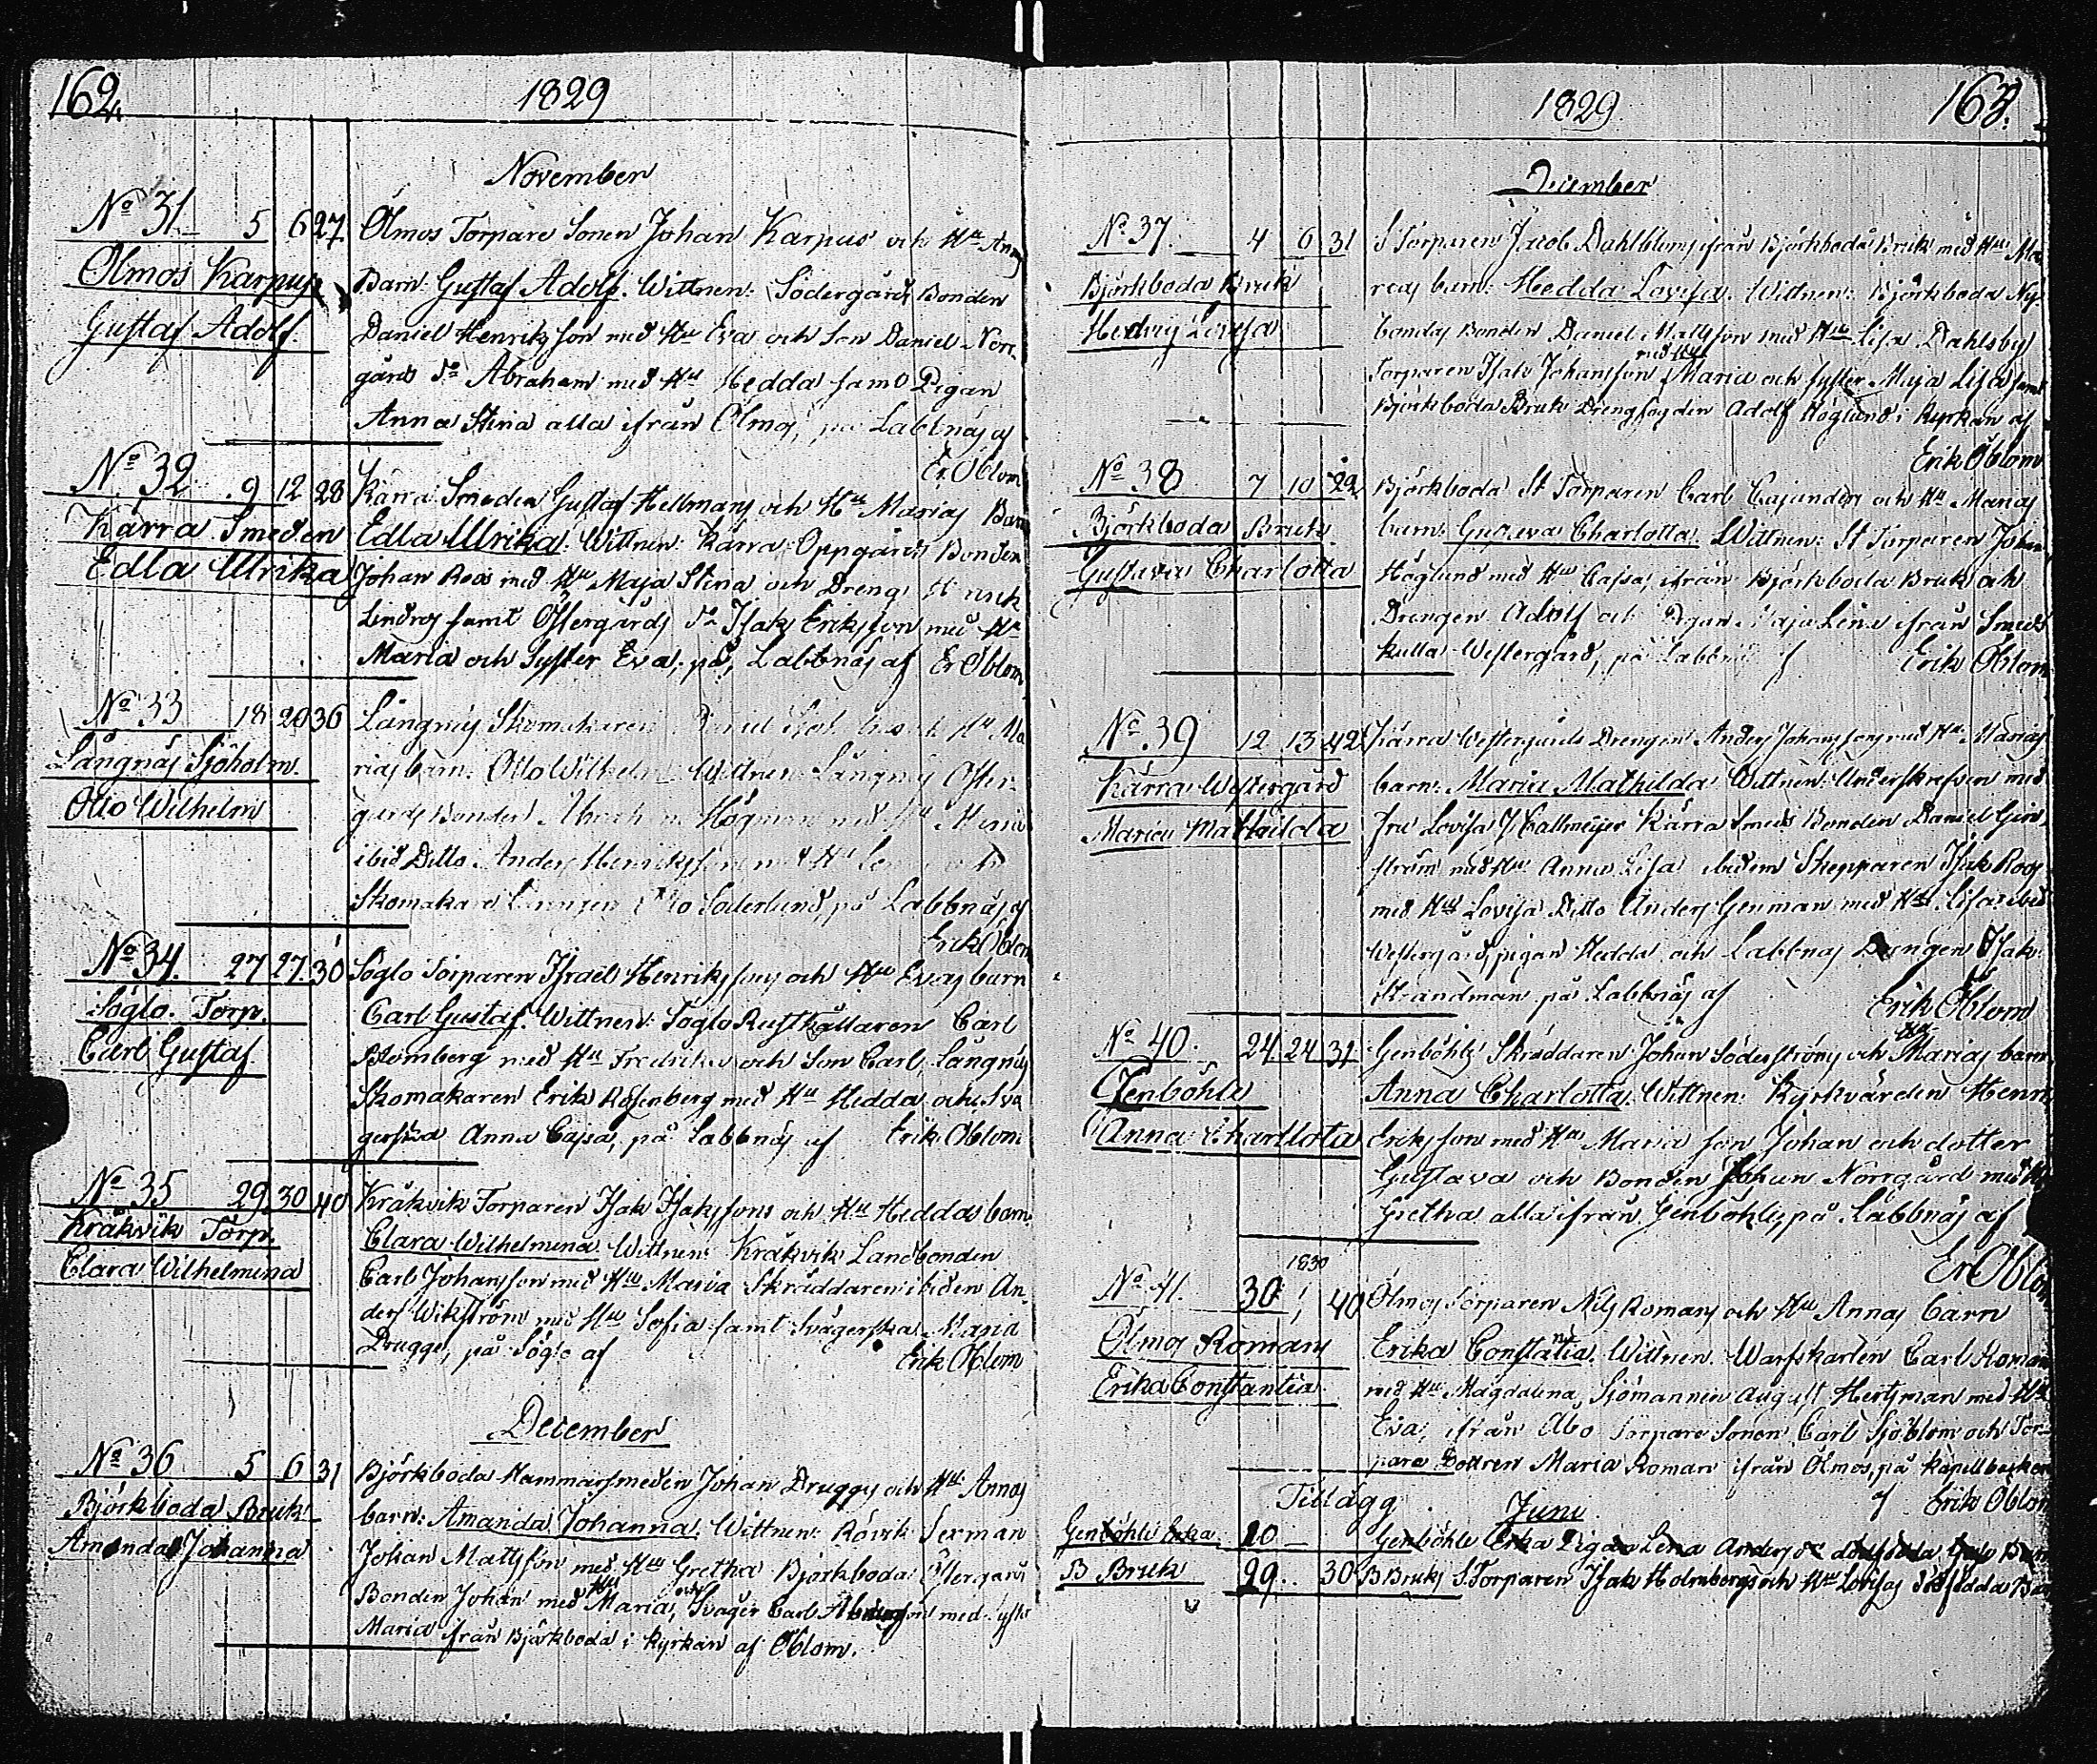 162.
1829
November
No 31 5 6 27.
Ölmos Karpus
Gustaf Adolf.
Ölmos Torpare Sonen Johan Karpus och Hu Annas
Barn: Gustaf Adolf. Wittnen: Södergårds Bonden
Daniel Henriksson med Hu Eva och Son Daniel Norr-
gårds do Abraham med Hu Hedda samt Pigan
Anna Stina alla ifrån Ölmos, på Labbnäs af
Er Öblom
No 32 9 12 28
Kärra Smeden
Edla Ulrika
Kärra Smeden Gustaf Hellmans och Hu Marias Barn
Edla Ulrika. Wittnen: Kärra Oppgårds Bonden
Johan Roos med Hu Maja Stina och Dreng
Lindros samt Östergårds do Isak Eriksson med Hu
Maria och Syster Eva, på Labbnäs af Er Öblom
No 33 18 20 36
Långnäs Sjöholm.
Otto Wilhelm
Långnäs Skomakaren och Hu Ma
rias barn: Otto Wilhelm Wittnen Långnäs Öster-
gårds Bonden Högman med Hu Maria
ibid Ditto Anders Henriksson med Hu
Skomakare Söderlund, på Labbnäs af
Erik Öblom
No 34. 27 27. 30
Söglo. Torp.
Carl Gustaf
Söglo Torparen Israel Henrikssons och Hu Evas barn
Carl Gustaf. Wittnen: Söglo Rusthållaren Carl
Blomberg med Hu Fredrika och Son Carl, Långnäs
Skomakaren Erik Rosenberg med Hu Hedda och Svä
gerska Anna Cajsa, på Labbnäs af Erik Öblom
No 35 29 30 40
Kråkvik Torp.
Clara Wilhelmina
Kråkvik Torparen Isak Isakssons och Hu Heddas barn
Clara Wilhelmina Wittnen: Kråkvik Landbonden
Carl Johansson med Hu Maria Skräddaren ibidem An-
ders Wikström med Hu Sofia samt Svägerska Maria
Drugge, på Söglo af Erik Öblom
December
No 36 5 6 31
Björkboda Bruk
Amanda Johanna
Björkboda Hammarsmeden Johan Druggs och Hu Annas
barn: Amanda Johanna. Wittnen: Rövik Sexman
Johan Mattsson med Hu Gretha Björkboda Östergårds
Bonden Johan med Hu Maria, Svåger Carl med Syster
Maria ifrån Björkboda i kyrkan af Öblom.
1829.
163.
December
No 37. 4 6 31
Björkboda Bruk
Hedvig Lovisa
S Torparen Jacob Dahlbloms ifrån Björkboda Bruk med Hu Ma
rias barn: Hedda Lovisa. Wittnen: Björkboda Ny-
bonda Bonden Daniel Mattsson med Hu Lisa Dahlsby
Torparen Isak Johansson med Hu Maria och syster Maja Lisa samt
Björkboda Bruks Drengfogden Adolf Höglund i kyrkan af
Erik Öblom
No 38 7 10 22
Björkboda Bruk.
Gustava Charlotta
Björkboda St Torparen Carl Cajanders och Hu Marias
barn: Gustava Charlotta. Wittnen: St Torparen Johan
Höglund med Hu Cajsa, ifrån Björkboda Bruk och
Drengen Adolf och Pigan Maja Lena ifrån Smeds
kulla Westergård, på Labbnäs af Erik Öblom
No 39 12 13 42
Kärra Westergård
Maria Mathilda
Kärra Westergårds Drengen Anders Johanssons med Hu Marias
barn: Maria Mathilda Wittnen: Underskrefven med
Fru Lovisa J Callmeijer Kärra Smeds Bonden Daniel Gin
ström med Hu Anna Lisa ibidem Skepparen Isak Roos
med Hu Lovisa Ditto Anders Genman med Hu Lisa ibid
Westergård, pigan Hedda och Labbnäs Drengen Isak
Strandman på Labbnäs af Erik Öblom
No 40. 24 24 31
Genböhle
Anna Charllota
Genböhle Skräddaren Johan Söderströms och Hu Marias barn
Anna Charlotta. Wittnen: Kyrkvärden Henr
Eriksson med Hu Maria son Johan och dotter
Gustava och Bonden Johan Norrgård med Hu
Gretha alla ifrån Genböhle, på Labbnäs af
Er Öblom
1830
No 41. 30 1 40
Ölmos Romans
Erika Constantia.
Ölmos Torparen Nils Romans och Hu Annas barn
Erika Constantia. Wittnen. Warfskarlen Carl Roman
med Hu Magdalena, Sjömannen August Hertsman med Hu
Eva, ifrån Åbo Torpare Sonen Carl Sjöblom och Tor-
pare Dottren Maria Roman ifrån Ölmos, på Kapellbacken
af Erik Öblom
Tillägg
Juni
Genböhle Erka 20 Genböhle Erka Pigan Lena Anders
B Bruk 29. 30 B Bruks S Torparen Isak Holmbergs och Hu Lovisas dödfödda Barn